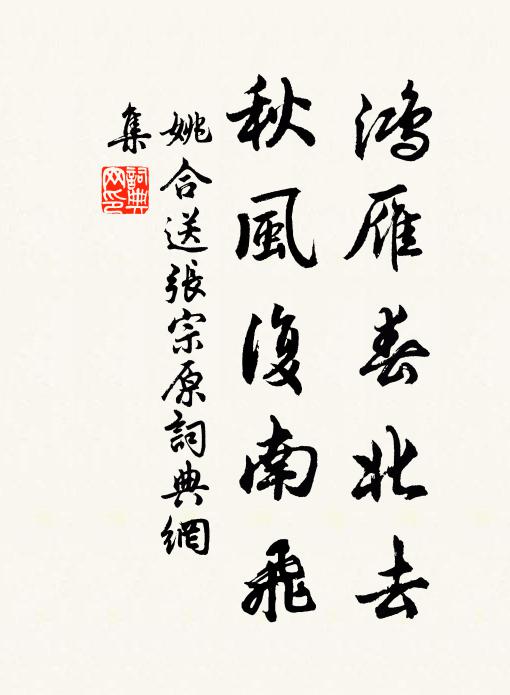 鴻雁春北去
秋風復南飛
姚合送張宗原詞典網
集
詞典
网印